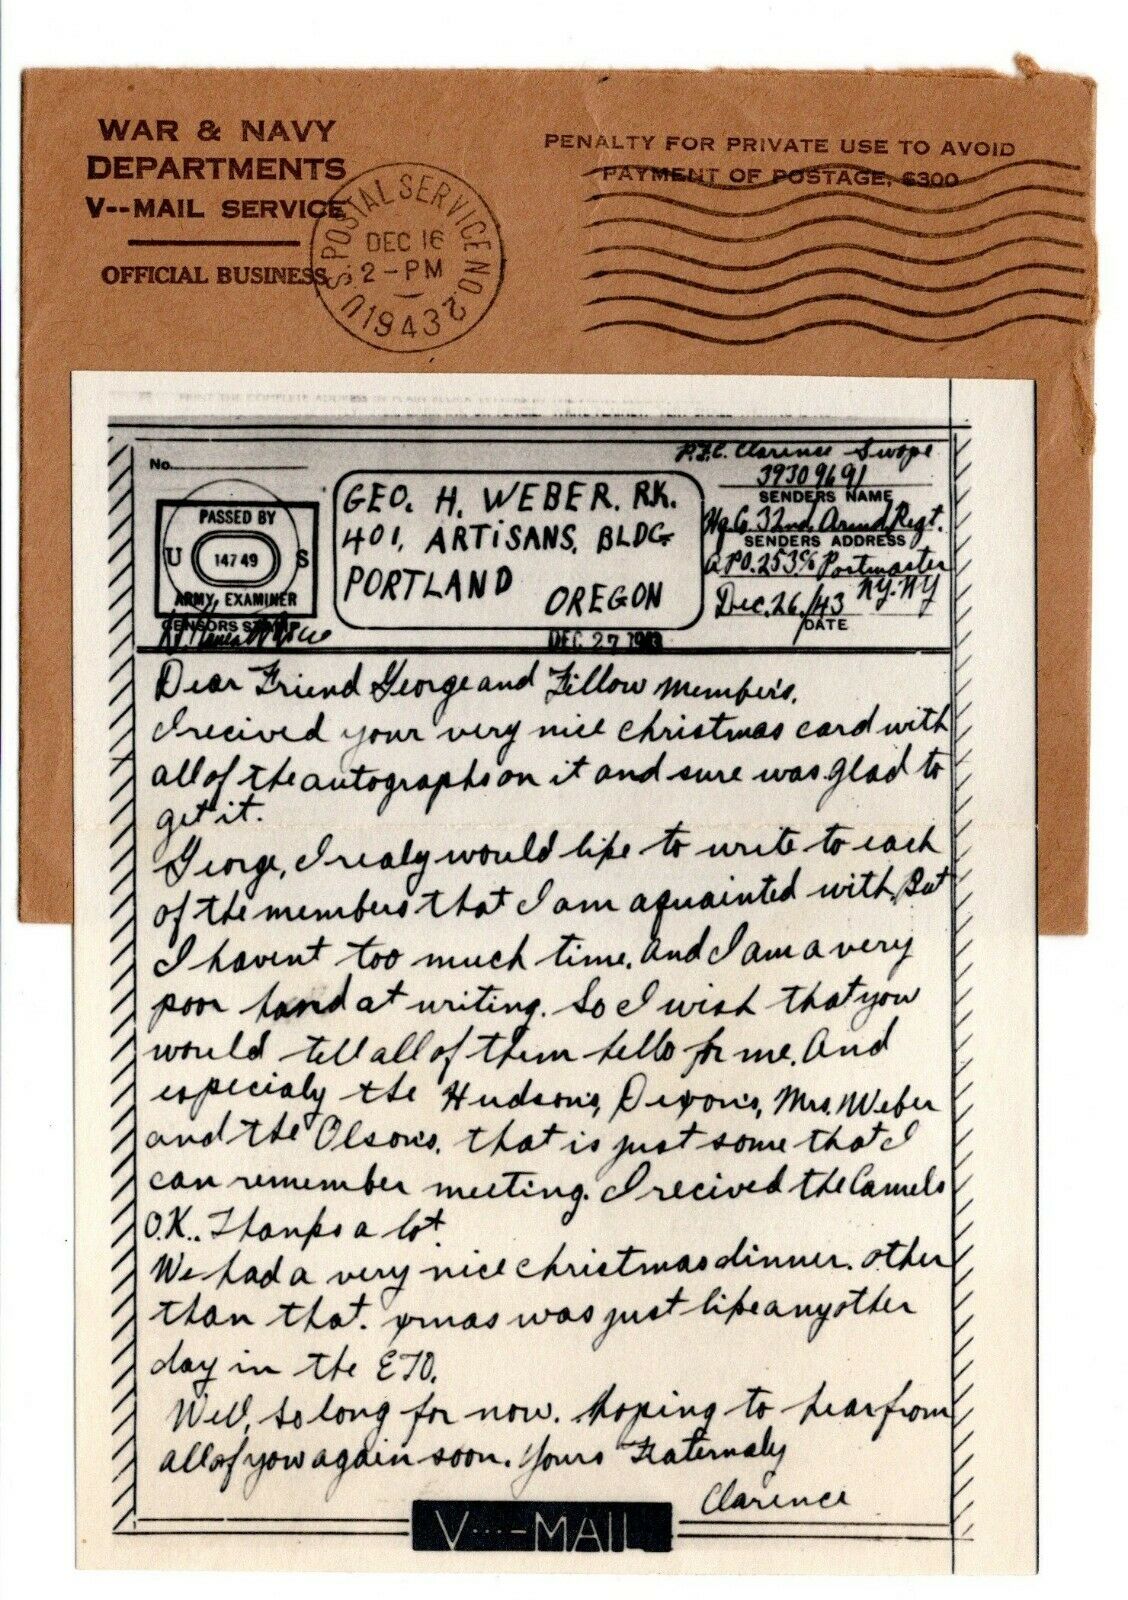 WAR & NAVY
DEPARTMENTS
V--MAIL SERVICE
OFFICIAL BUSINESS
U.S. POSTAL SERVICE NO. 2
DEC 16
2-PM
1943
PENALTY FOR PRIVATE USE TO AVOID
PAYMENT OF POSTAGE, $300
No.
PASSED BY
U S
14749
ARMY, EXAMINER
CENSORS STAMP
GEO. H. WEBER. RK.
401, ARTISANS, BLDG
PORTLAND OREGON
P.F.C. Clarence Swope
39309691
SENDERS NAME
Hq. Co. 32nd. Armd. Regt.
SENDERS ADDRESS
A.P.O. 253 c/o Postmaster
N.Y. N.Y
Dec. 26, /43
DATE
DEC 27 1943
Dear Friend George and Fillow members.
I recived your very nice christmas card with
all of the autographs on it and sure was glad to
get it.
George, I realy would like to write to each
of the members that I am aquainted with. But
I havent too much time. and I am a very
poor hand at writing. So I wish that you
would tell all of them hello for me. And
especialy the Hudson's, Dixon's, Mrs. Weber
and the Olson's. that is just some that I
can remember meeting. I recived the Camels
O.K.. Thanks a lot.
We had a very nice christmas dinner. other
than that. xmas was just like any other
day in the ETO.
Well, so long for now. hoping to hear from
all of you again soon. Yours Fraternaly
Clarence
V···-MAIL